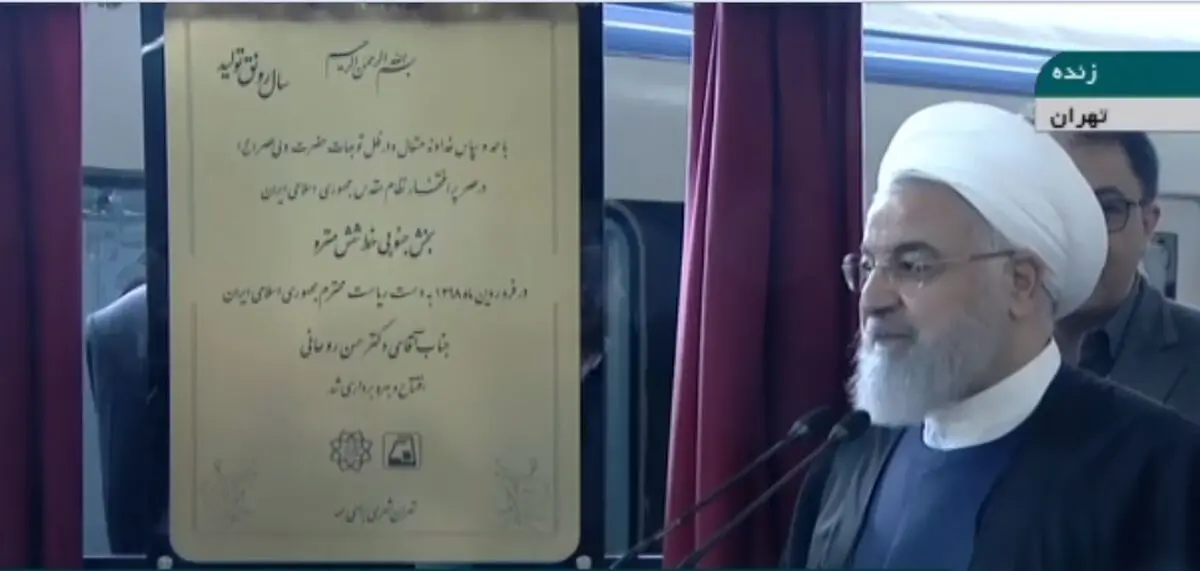 بسم الله الرحمن الرحیم
سال رونق تولید
با حمد و سپاس خداوند متعال و در ظل توجهات حضرت ولی عصر (عج)
در عصر پر افتخار نظام مقدس جمهوری اسلامی ایران
بخش جنوبی خط شش مترو
در فروردین ماه ۱۳۹۸ به دست ریاست محترم جمهوری اسلامی ایران
جناب آقای دکتر حسن روحانی
افتتاح و بهره برداری شد
تهران شهری برای همه
زنده
تهران